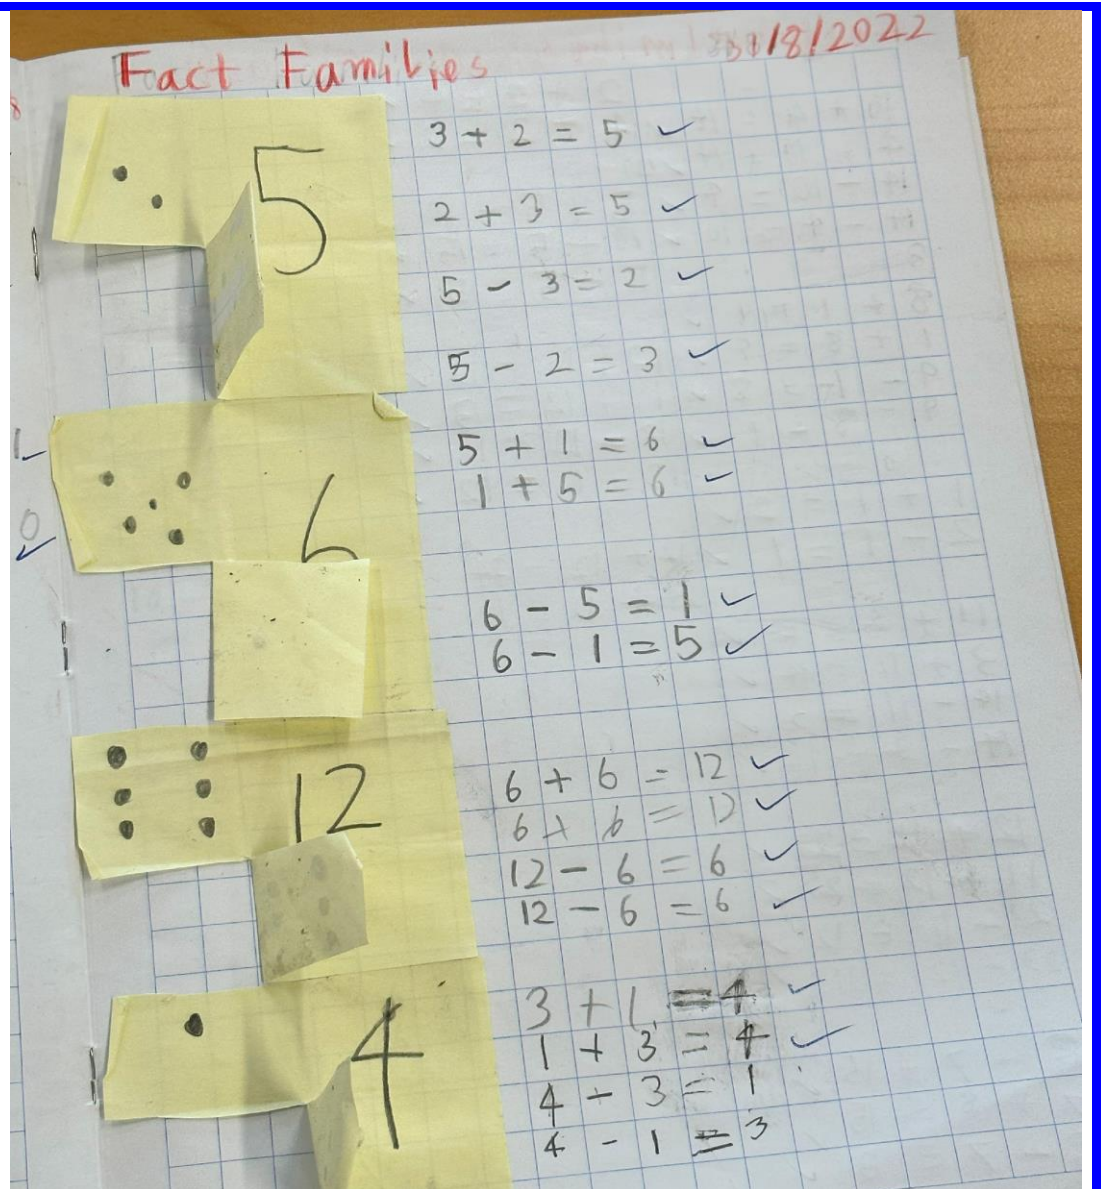 Fact Families
/8/2022
5
3 + 2 = 5 ✓
2 + 3 = 5 ✓
5 - 3 = 2 ✓
5 - 2 = 3 ✓
1
0
6
5 + 1 = 6 ✓
1 + 5 = 6 ✓
6 - 5 = 1 ✓
6 - 1 = 5 ✓
12
6 + 6 = 12 ✓
6 + 6 = 12 ✓
12 - 6 = 6 ✓
12 - 6 = 6 ✓
4
3 + 1 = 4 ✓
1 + 3 = 4 ✓
4 - 3 = 1
4 - 1 = 3